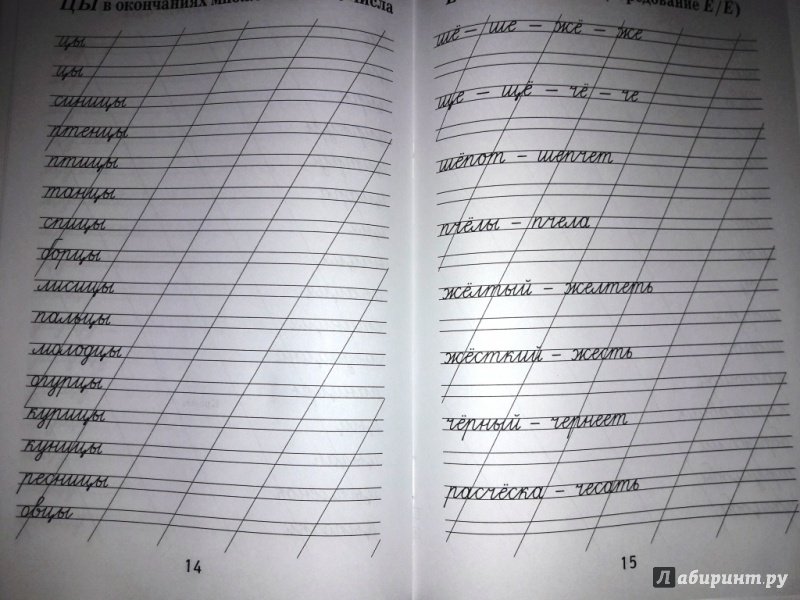 ЦЫ в окончаниях
цы
цы
синицы
птенцы
птицы
танцы
спицы
борцы
лисицы
пальцы
молодцы
огурцы
курицы
куницы
ресницы
овцы
14
Е/Ё)
шё – ше – жё – же
ще – щё – чё – че
шёпот – шепчет
пчёлы – пчела
жёлтый – желтеть
жёсткий – жесть
чёрный – чернеет
расчёска – чесать
15
Лабиринт.ру